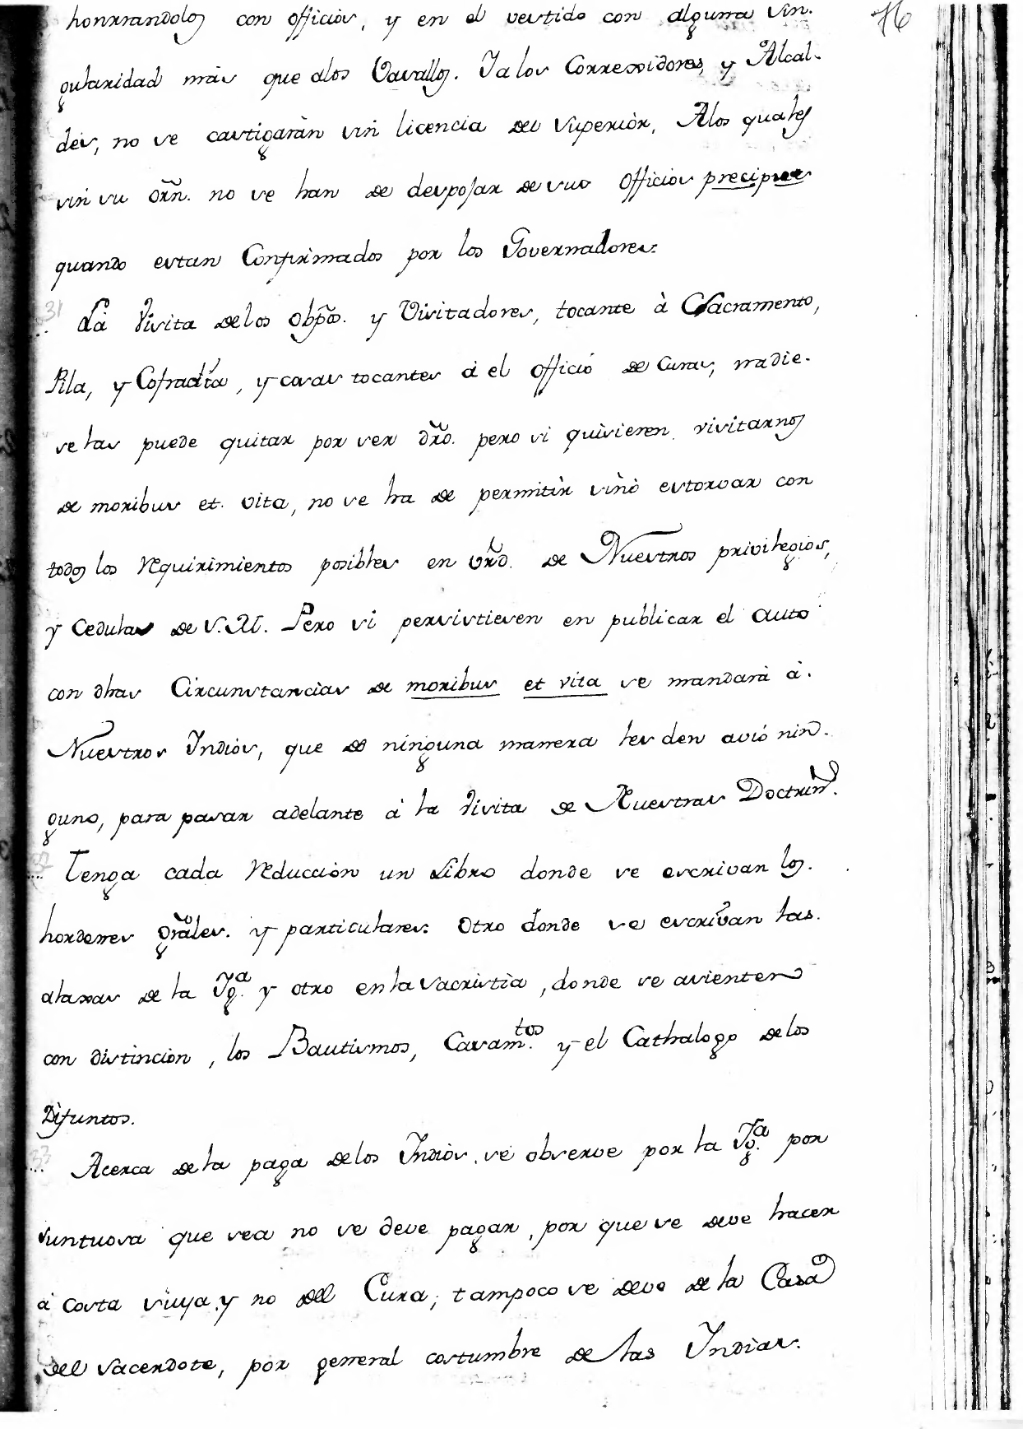 76
honrrandolos con officios, y en el vestido con alguna sin-
gularidad màs que alos Vasallos. Ialos Corregidores, y Alcal-
des, no se castigaràn sin licencia del Superiòr, Alos quales
sin su òrñ. no se han de despojar de sus officios precipue
quando estan Confirmados por los Governadores:
31 La Visita delos Obp̃os. y Visitadores, tocante à Sacramento,
Pila, y Cofradĩa, y cosas tocantes á el offició de Curas, nadie-
se las puede quitar por ser dr̃o. pero si quisieren visitarnos
de moribus et vita, no se ha de permitìr sinò estorvar con
todos los requirimientos posibles en vr̃d. de Nuestros privilegios,
y Cedulas de S.M. Pero si persistiesen en publicar el auto
con dhas Circunstancias de moribus et vita se mandarà à
Nuestros Indios, que de ninguna manera les den avió nin-
guno, para pasar adelante à la Visita de Nuestras Doctrin.s
32 Tenga cada Reducciòn un Libro donde se escrivan los
hordenes gr̃ales. y particulares: Otro donde se escrivan las
alaxas de la Yg.a y otro enla sacristìa, donde se asienten
con distinciòn, los Bautismos, Casam.tos y el Cathalogo delos
Difuntos.
33 Acerca dela paga delos Indios se observe por la Yg.a por
suntuosa que sea no se deve pagar, por que se deve hacer
à costa suya y no del Cura; tampoco se deve de la Casa
del sacerdote, por general costumbre de las Indias.